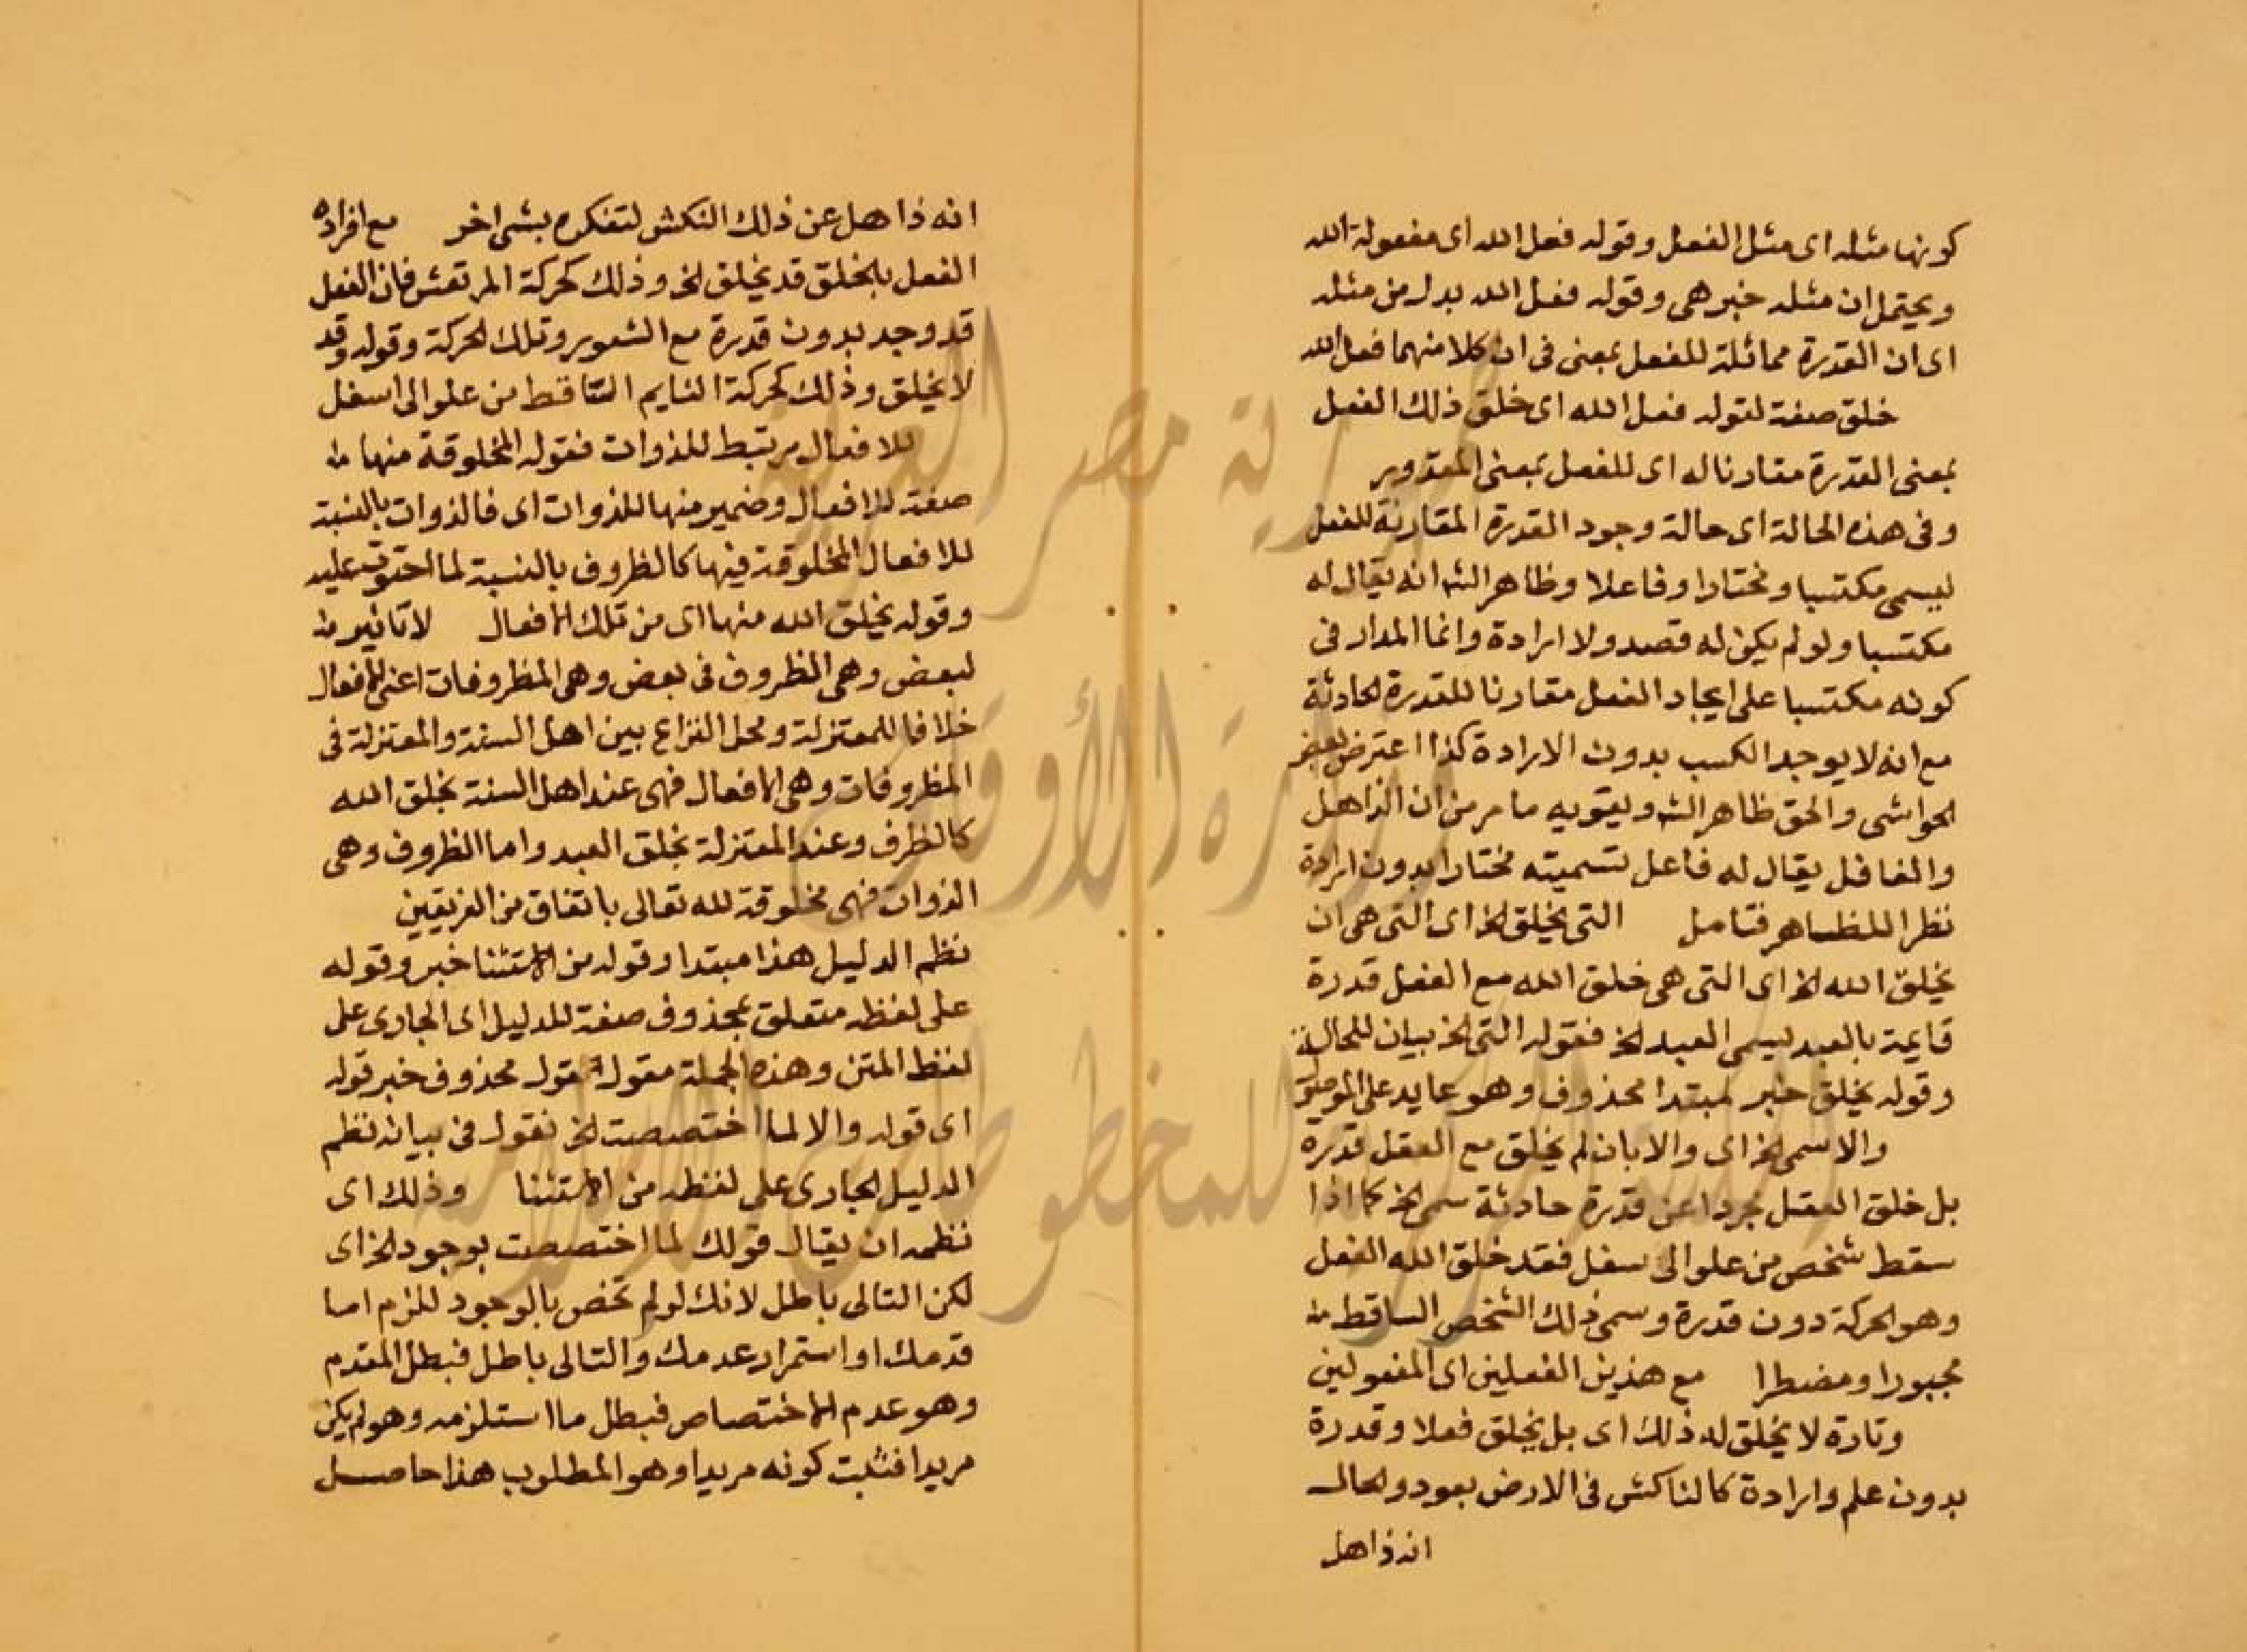 كونها مثله اى مثل الفعل وقوله فعل الله اى مفعولة الله
ويحتمل ان مثله خبر هى وقوله فعل الله بدل من مثله
اى ان القدرة مماثلة للفعل بمعنى فى ان كلا منهما فعل الله
خلق صفة لقوله فعل الله اى خلق ذلك الفعل
بمعنى القدرة مقارنا له اى للفعل بمعنى المقدور
وفى هذه الحالة اى حالة وجود القدرة المقارنة للفعل
ليسمى مكتسبا ومختارا وفاعلا وظاهر الشـ انه يقال له
مكتسبا ولو لم يكن له قصد ولا ارادة وانما المدار فى
كونه مكتسبا على ايجاد الفعل مقارنا للقدرة الحادثة
مع انه لا يوجد الكسب بدون الارادة كذا اعترض بعض
الحواشى والحق ظاهر الشـ ويقويه ما مر من ان الذاهل
والغافل يقال له فاعل تسميته مختارا بدون ارادة
نظرا للظاهر فتامل التى يخلق الخ اى التى هى ان
يخلق الله الخ اى التى هى خلق الله مع الفعل قدرة
قايمة بالعبد ليسمى العبد الخ فقوله التى الخ بيان للحالة
وقوله يخلق خبر لمبتدا محذوف وهو عايد على الموصول
والا سمى الخ اى والا بان لم يخلق مع الفعل قدرة
بل خلق الفعل مجردا عن قدرة حادثة سمى الخ كما اذا
سقط شخص من علو الى سفل فقد خلق الله الفعل
وهو الحركة دون قدرة وسمى ذلك الشخص الساقط
مجبورا ومضطرا مع هذين الفعلين اى المفعولين
وتارة لا يخلق له ذلك اى بل يخلق فعلا وقدرة
بدون علم وارادة كالناكش فى الارض بعود والحال
انه ذاهل
انه ذاهل عن ذلك النكش لتفكره بشى اخر مع افراده
الفعل بالخلق قد يخلق الخ وذلك كحركة المرتعش فان الفعل
قد وجد بدون قدرة مع الشعور وتلك الحركة وقوله وقد
لا يخلق وذلك كحركة النايم الساقط من علو الى اسفل
للافعال مرتبط للذوات فقوله المخلوقة منها
صفة للافعال وضمير منها للذوات اى فالذوات بالنسبة
للافعال المخلوقة فيها كالظروف بالنسبة لما احتوت عليه
وقوله يخلق الله منها اى من تلك الافعال لا تاثير
لبعض وهى الظروف فى بعض وهى المظروفات اعنى الافعال
خلافا للمعتزلة ومحل النزاع بين اهل السنة والمعتزلة فى
المظروفات وهى الافعال فهى عند اهل السنة بخلق الله
كالظرف وعند المعتزلة بخلق العبد واما الظروف وهى
الذوات فهى مخلوقة لله تعالى باتفاق من الفريقين
نظم الدليل هذا مبتدا وقوله من الاستثنا خبر وقوله
على لفظه متعلق بمحذوف صفة للدليل اى الجارى على
لفظ المتن وهذه الجملة مقولة لقول محذوف خبر قوله
اى قوله والا لما اختصصت الخ نقول فى بيان نظم
الدليل الجارى على لفظه من الاستثنا وذلك اى
نظمه ان يقال قولك لما اختصصت بوجود الخ اى
لكن التالى باطل لانك لو لم تخص بالوجود للزم اما
قدمك او استمرار عدمك والتالى باطل فبطل المقدم
وهو عدم الاختصاص فبطل ما استلزمه وهو لم يكن
مريدا فثبت كونه مريدا وهو المطلوب هذا حاصل